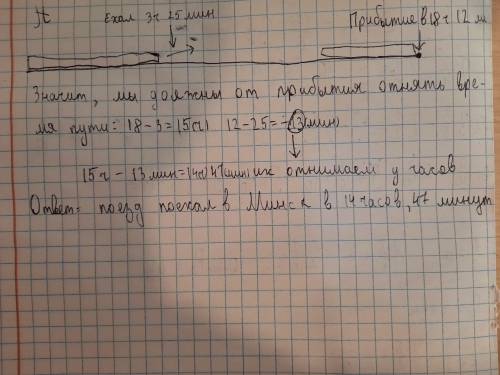 Ехал 3ч 25 мин
Прибытие в 18 ч 12 м
Значит, мы должны от прибытия отнять вре-
мя пути: 18-3=15(ч) 12-25=-13(мин)
15ч - 13 мин=14(ч) 47(мин) их отнимаем у часов
Ответ: поезд поехал в Минск в 14 часов, 47 минут